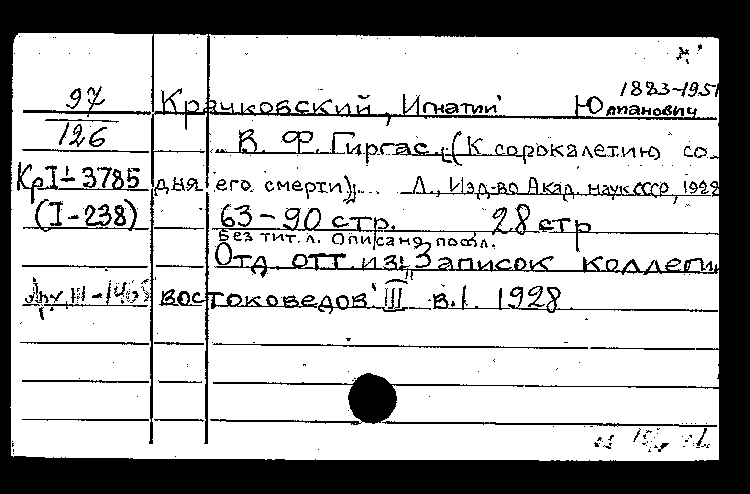 1883-1951
97 Крачковский, Игнатий Юлианович
126 В. Ф. Гиргас. (К сорокалетию со
КрI-3785 дня его смерти). Л., Изд-во Акад. наук СССР, 1928
(I-238) 63-90 стр. 28 стр
Без тит. л. Описано по обл.
Отд. отт. из: "Записок коллеги
Арх. III-1465 востоковедов" III в.1. 1928.